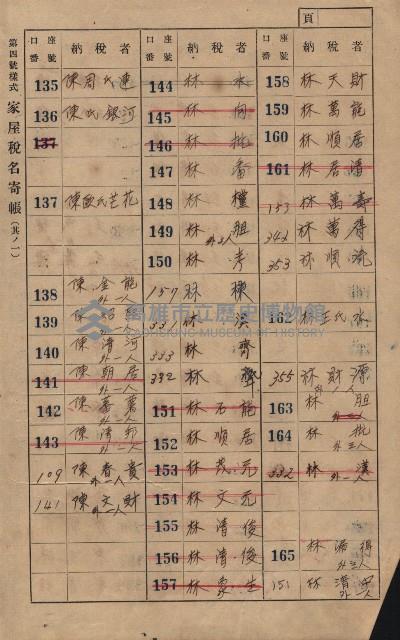 頁
第四號樣式 家屋稅名寄帳 (其ノ一)
口座番號 納稅者
135 陳周氏連
136 陳氏銀河
137
137 陳歐氏芒花
138 陳金能 外一人
139 陳 外一人
140 陳清河 外一人
141 陳朝居 外一人
142 陳 外一人
143 陳清郎 外一人
109 陳春貴 外一人
141 陳文財 外一人
口座番號 納稅者
144 林水
145 林向
146 林批
147 林番
148 林權
149 林胆 外三人
150 林考
157 林棟
331 林漢
333 林齊
332 林
151 林石能
152 林順居
153 林茂元
154 林文元
155 林清俊
156 林清俊
157 林象生
口座番號 納稅者
158 林天財
159 林萬能
160 林順居
161 林居
153 林萬壽
342 林萬得
353 林順流
162 林王氏
355 林財源 外一人
163 林胆
164 林批 外三人
332 林漢 外一人
165 林得 外三人
151 林清 外一人
高雄市立歷史博物館
KAOHSIUNG MUSEUM OF HISTORY